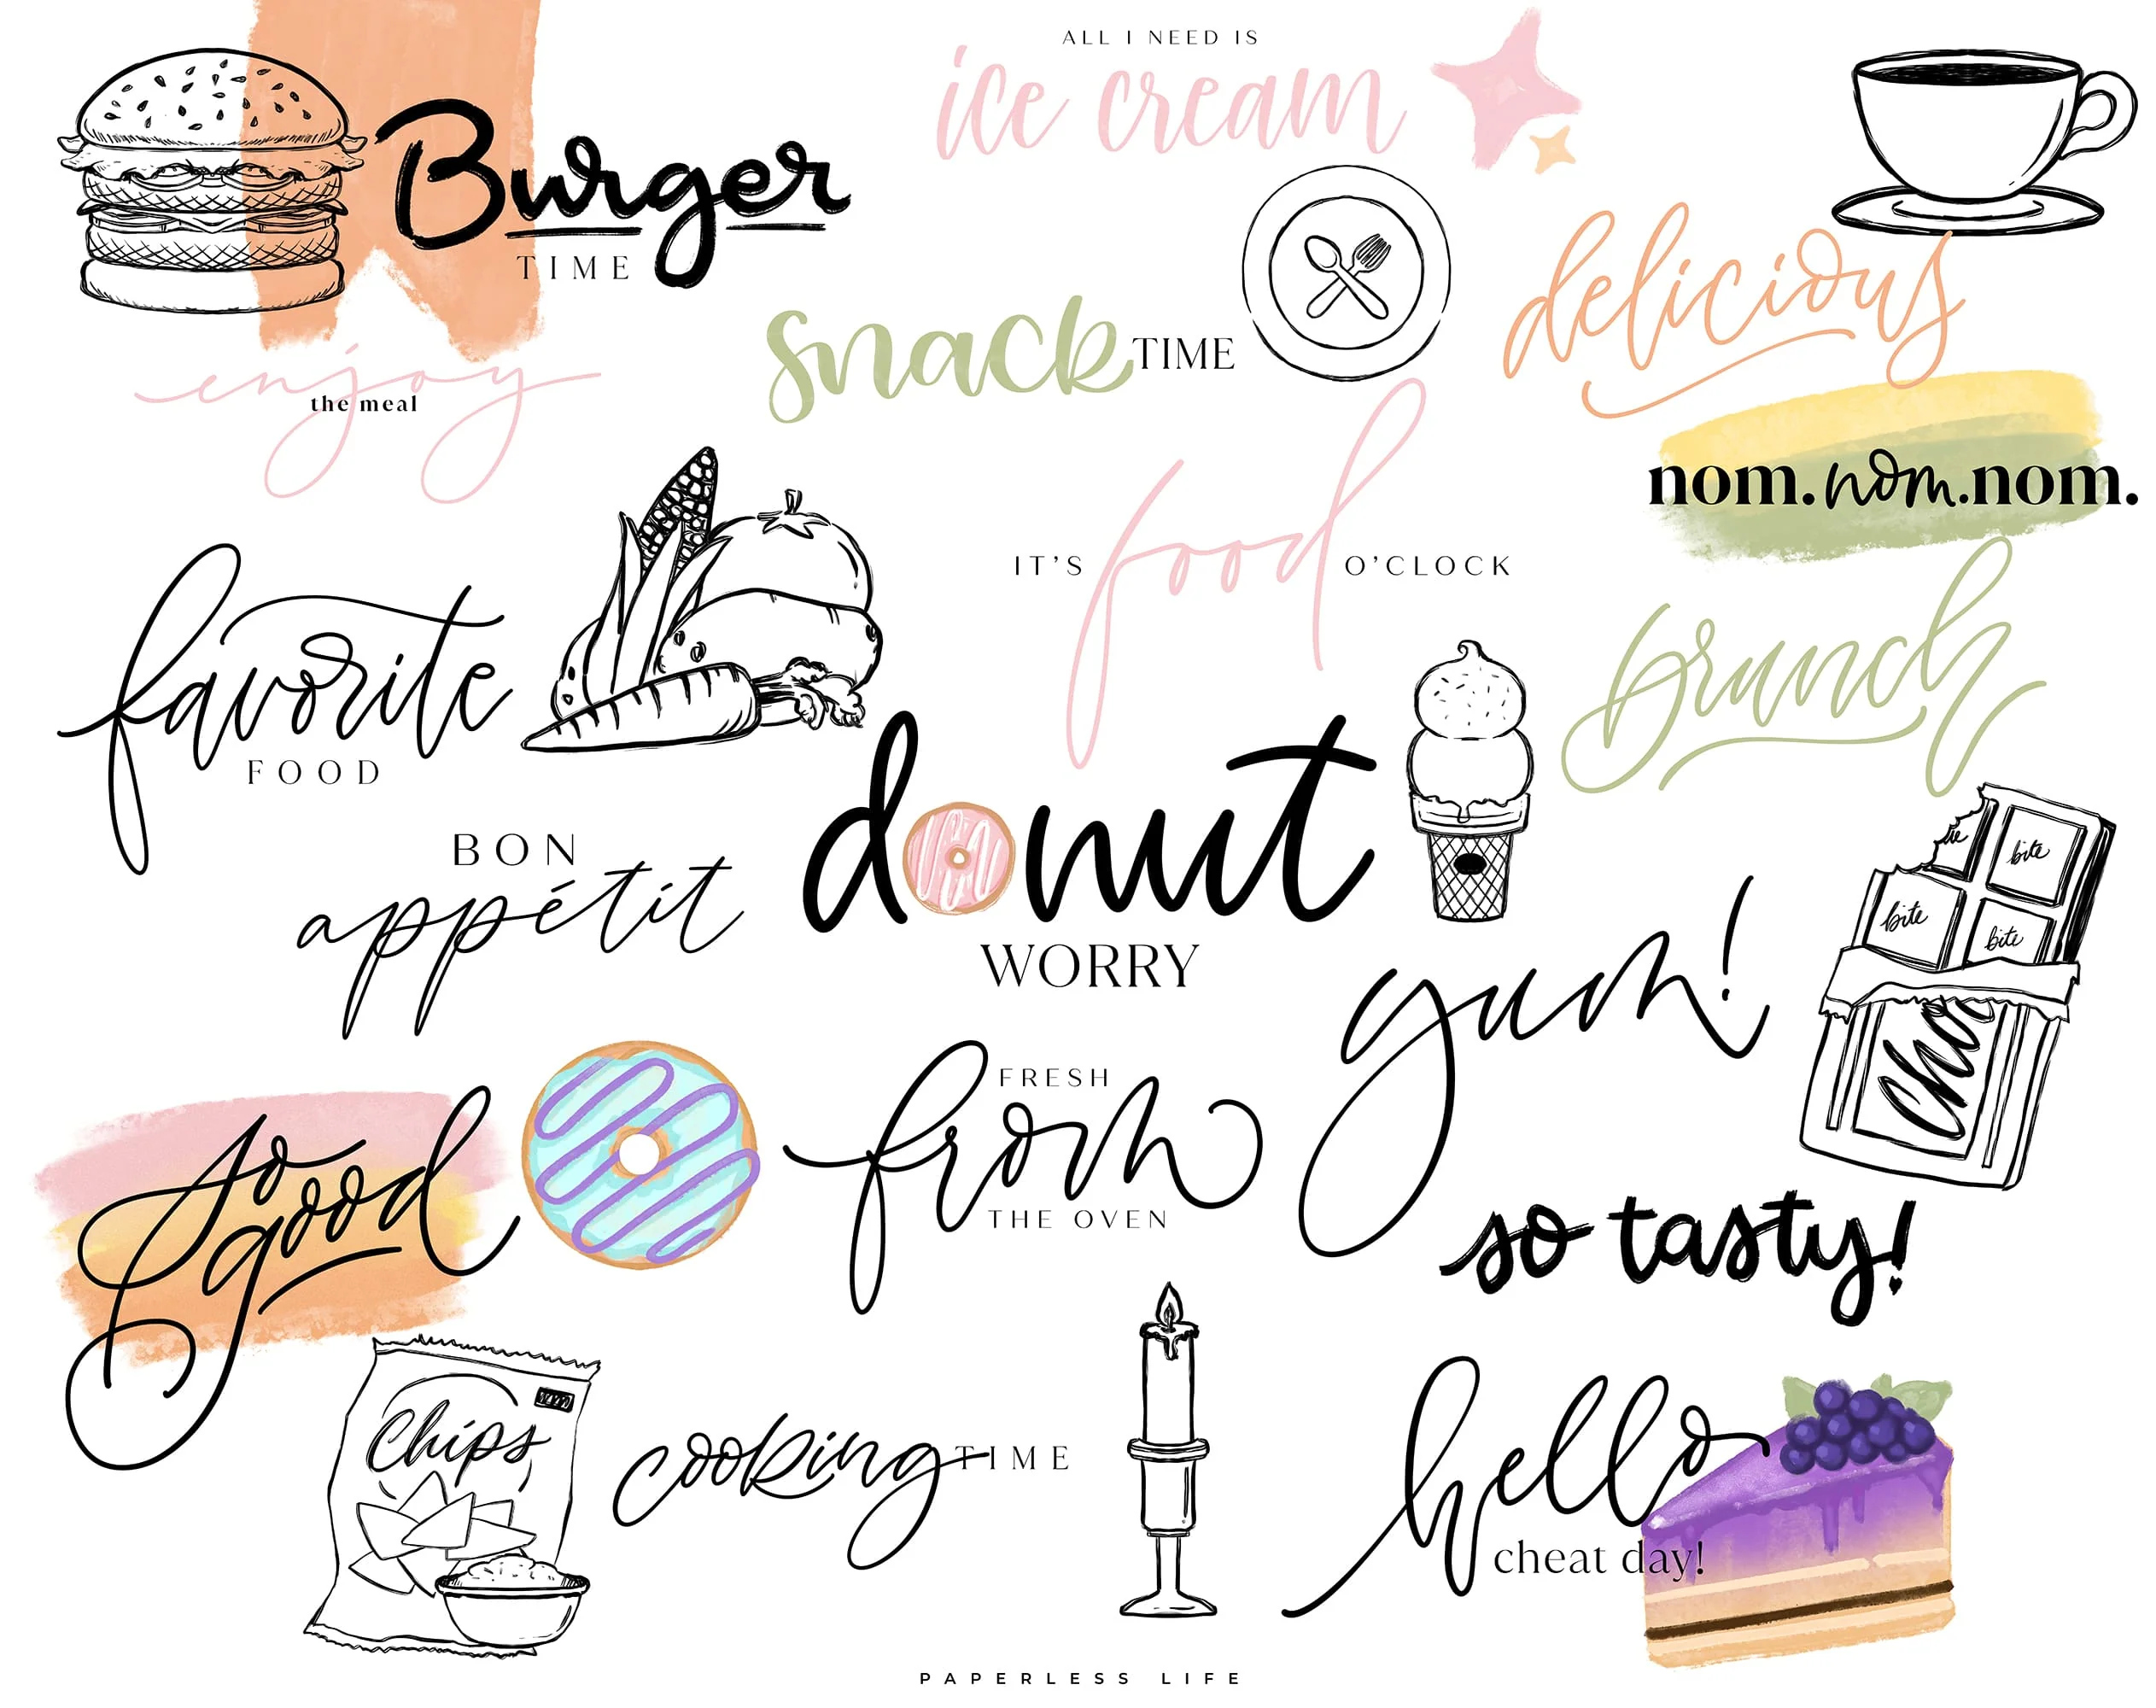 ALL I NEED IS
ice cream
Burger
TIME
delicious
snack TIME
enjoy
the meal
nom.nom.nom.
IT'S food O'CLOCK
favorite
FOOD
brunch
donut
WORRY
BON
appétit
bite
bite
bite
yum!
FRESH
from
THE OVEN
so
good
so tasty!
Chips
cooking TIME
hello
cheat day!
PAPERLESS LIFE